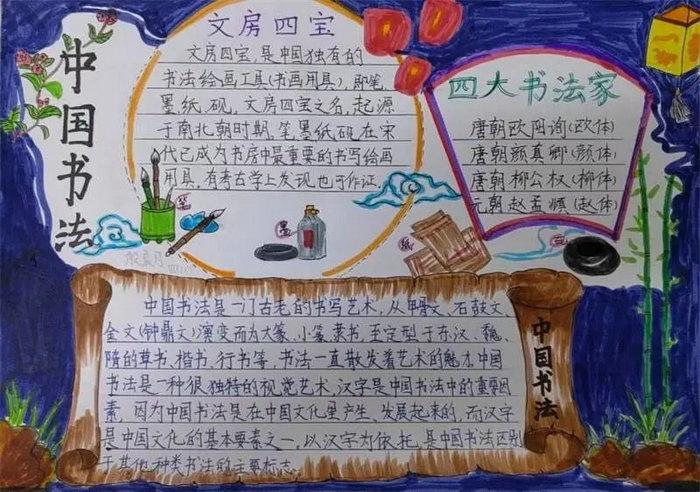 中国书法
文房四宝
文房四宝,是中国独有的
书法绘画工具(书画用具),即笔、
墨、纸、砚,文房四宝之名,起源
于南北朝时期,笔、墨、纸、砚在宋
代已成为书房中最重要的书写绘画
用具,有考古学上发现也可作证。
笔
墨
纸
四大书法家
唐朝欧阳询(欧体)
唐朝颜真卿(颜体)
唐朝柳公权(柳体)
元朝赵孟頫(赵体)
中国书法是一门古老的书写艺术,从甲骨文、石鼓文、
金文(钟鼎文)演变而为大篆、小篆、隶书,至定型于东汉、魏、
隋的草书、楷书、行书等,书法一直散发着艺术的魅力。中国
书法是一种很独特的视觉艺术,汉字是中国书法中的重要因
素,因为中国书法是在中国文化里产生、发展起来的,而汉字
是中国文化的基本要素之一,以汉字为依托,是中国书法区别
于其他种类书法的主要标志。
中国书法